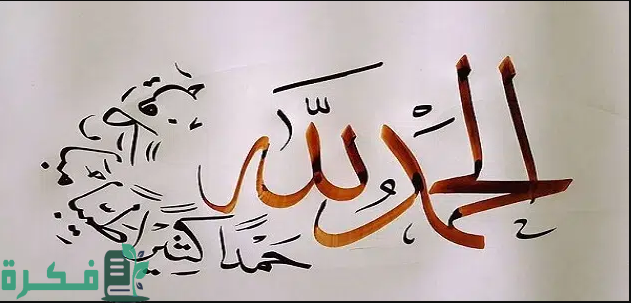 الحمد لله
حَمْدًا كَثِيْرًا طَيِّبًا مباركًا فيه
فكرة